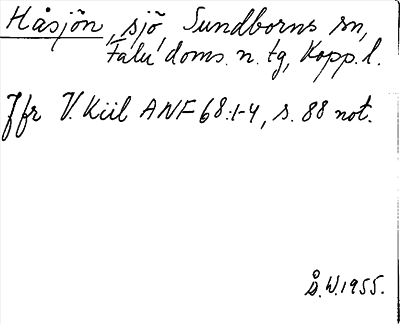 Håsjön, sjö, Sundborns sn,
Falu doms. n. tg, Kopp. l.
Jfr V. Kiil ANF 68:1-4, s. 88 not.
Å.W.1955.